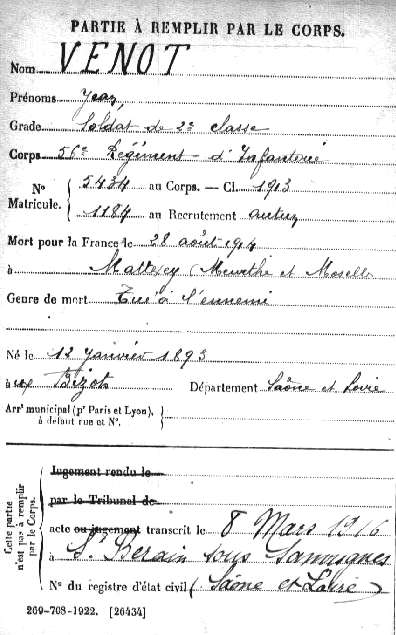 PARTIE À REMPLIR PAR LE CORPS.
Nom VENOT
Prénoms Jean,
Grade Soldat de 2e classe
Corps 56e Régiment d'Infanterie
N° Matricule. 5434 au Corps. — Cl. 1913
1184 au Recrutement Autun
Mort pour la France le 28 août 1914
à Mattexey (Meurthe et Moselle
Genre de mort Tué à l'ennemi
Né le 12 Janvier 1893
à Bizots Département Saône et Loire
Arr' municipal (p' Paris et Lyon),
à défaut rue et N°.
Cette partie n'est pas à remplir par le Corps.
Jugement rendu le
par le Tribunal de
acte ou jugement transcrit le 8 Mars 1916
à St Berain sous Sanvignes
N° du registre d'état civil (Saône et Loire)
269-708-1922. [26434]